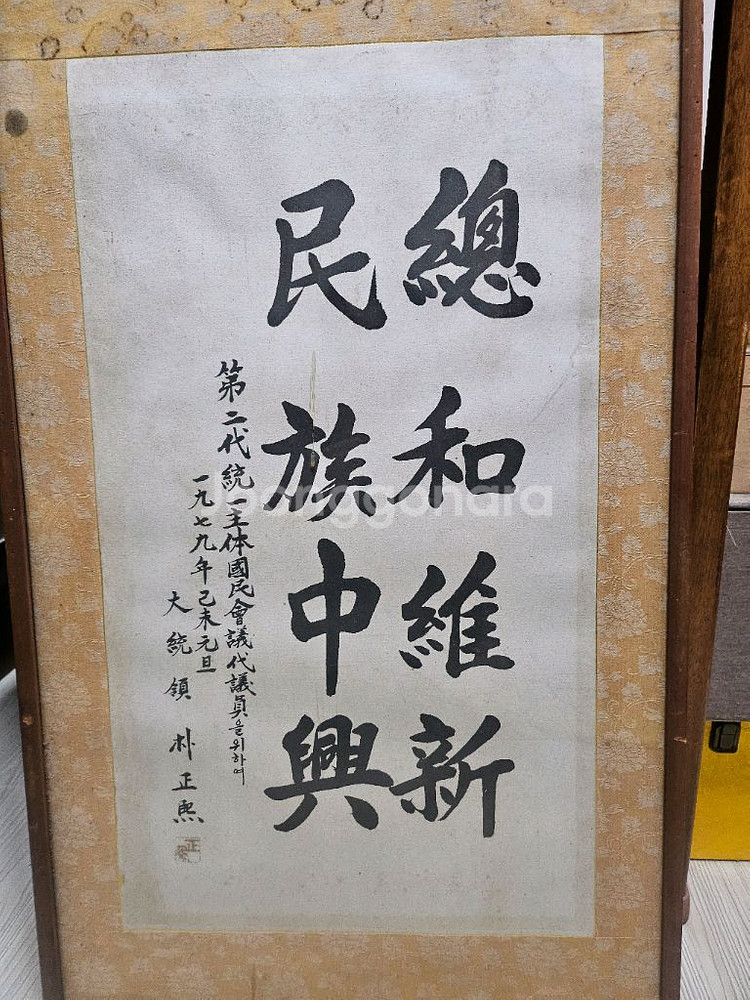 總和維新
民族中興
第二代統一主体國民會議代議員을위하여
一九七九年己未元旦
大統領 朴正熙
joonggonara